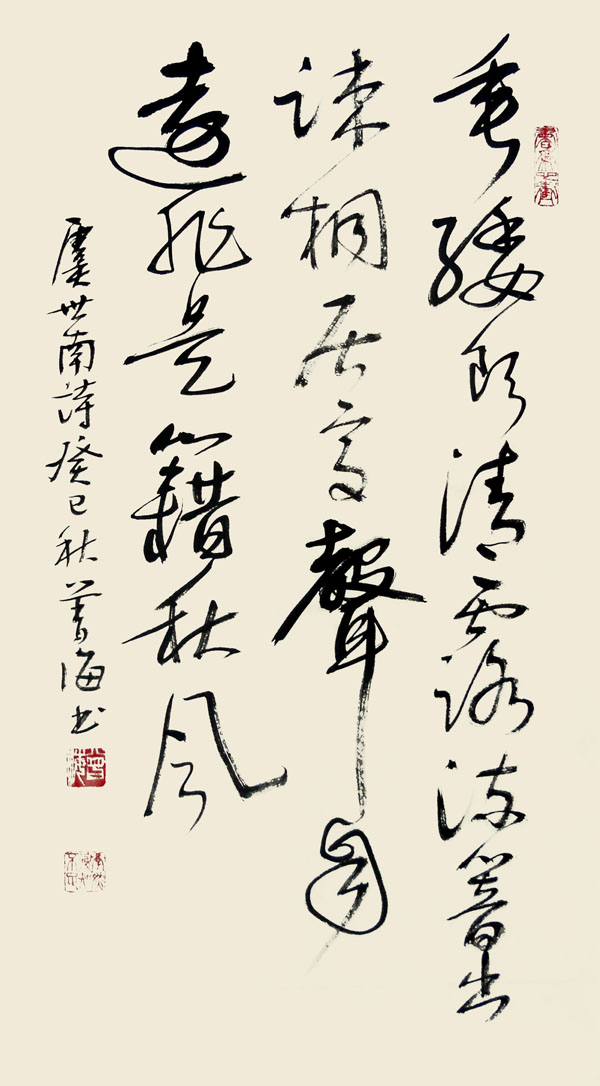 垂緌飲清露流響出
疎桐居高聲自
遠非是籍秋風
虞世南詩癸巳秋曾海书